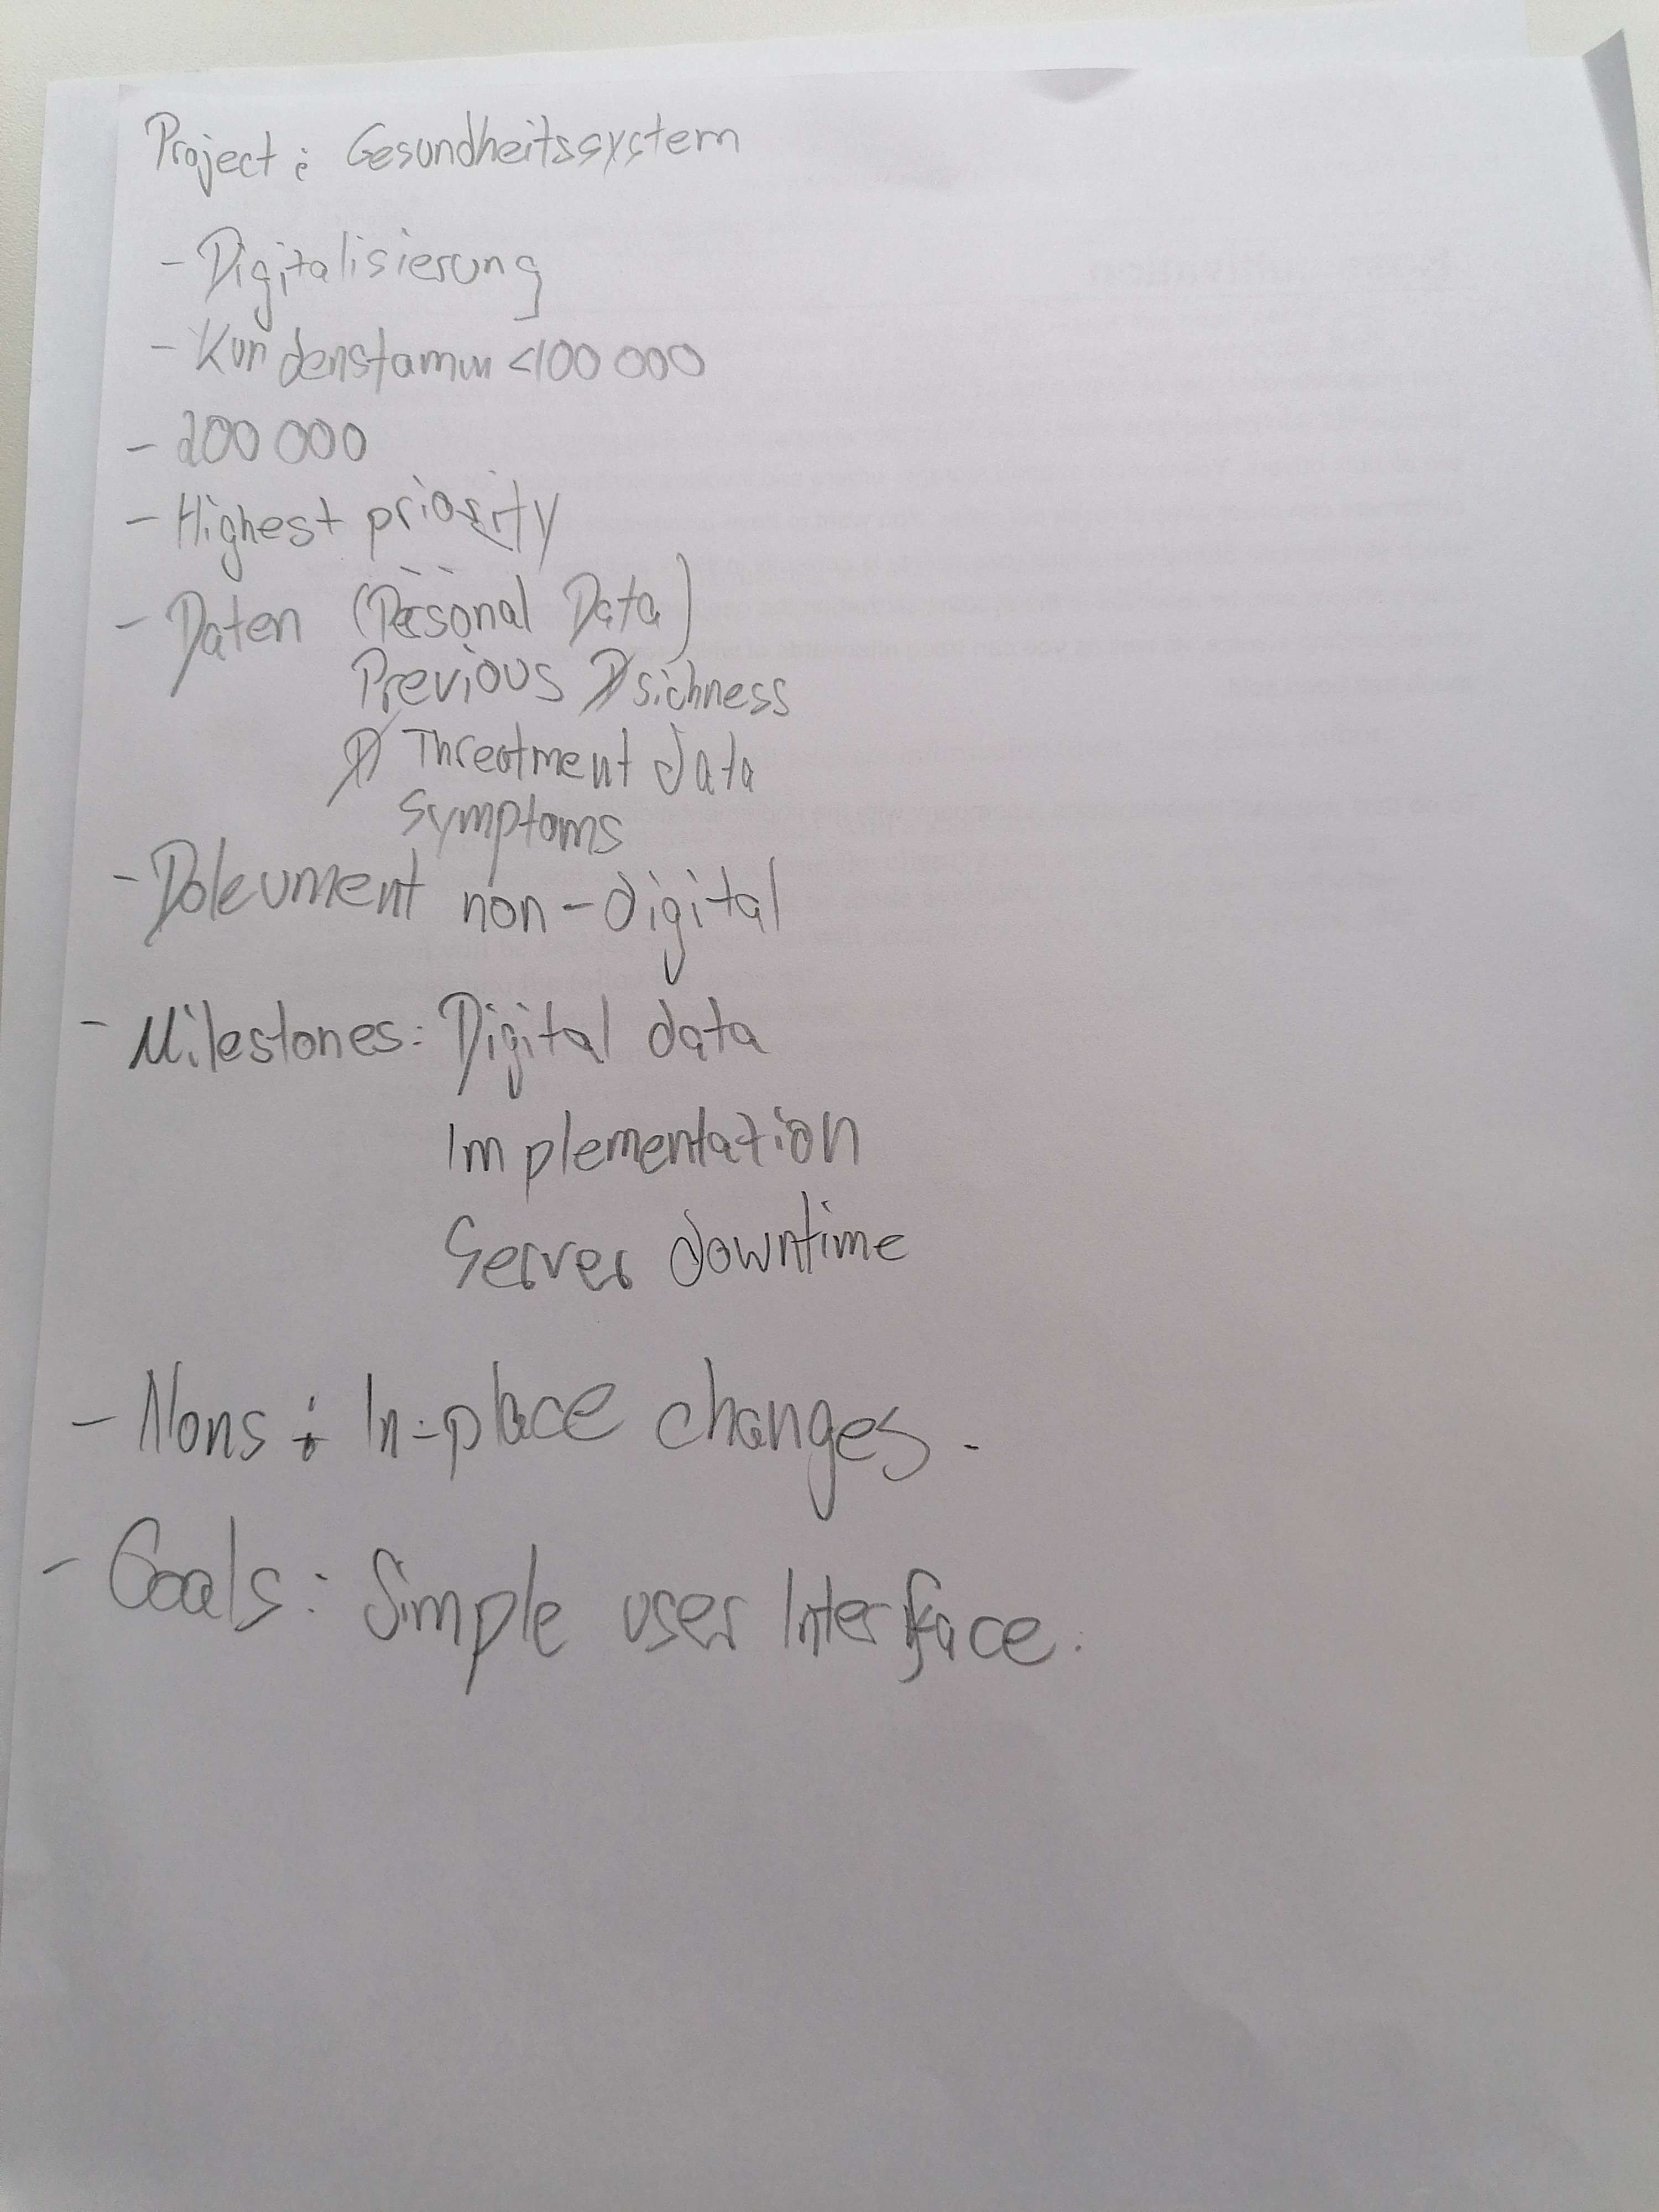 Project: Gesundheitssystem
- Digitalisierung
- Kundenstamm <100 000
- 200 000
- Highest priority
- Daten (Personal Data)
Previous sichness
Threatment data
Symptoms
- Dokument non-digital
- Milestones: Digital data
Implementation
Server downtime
- Nons: In-place changes.
- Goals: Simple user Interface.